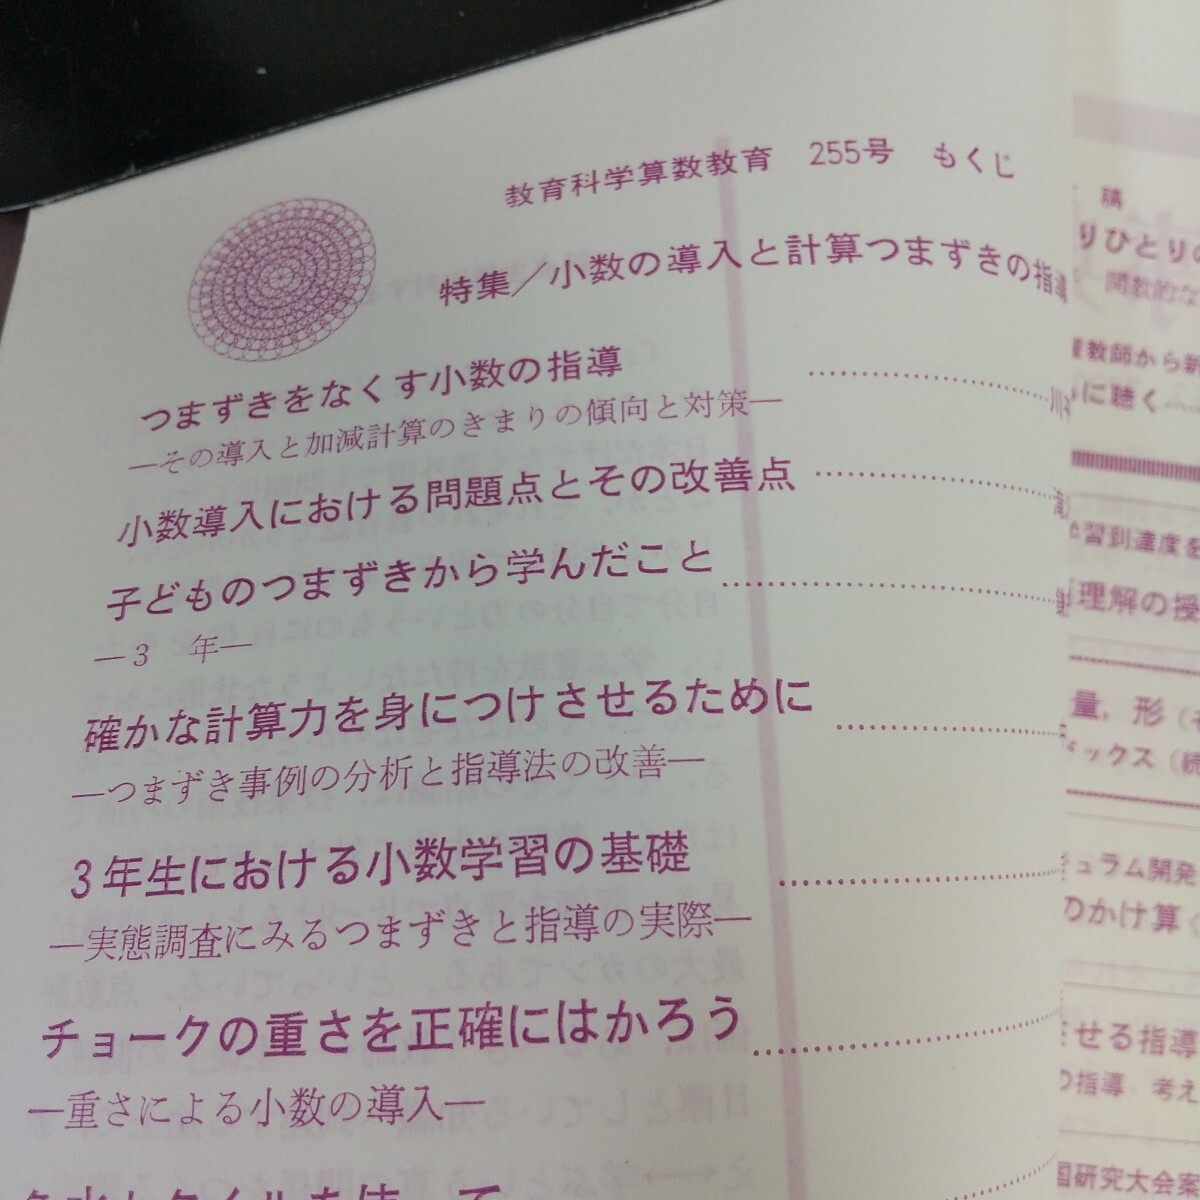 教育科学算数教育 255号 もくじ
特集／小数の導入と計算つまずきの指導
つまずきをなくす小数の指導
—その導入と加減計算のきまりの傾向と対策—
小数導入における問題点とその改善点
子どものつまずきから学んだこと
—3 年—
確かな計算力を身につけさせるために
—つまずき事例の分析と指導法の改善—
3年生における小数学習の基礎
—実態調査にみるつまずきと指導の実際—
チョークの重さを正確にはかろう
—重さによる小数の導入—
稿
りひとりの
教師から新
に聴く
学習到達度を
理解の授
量，形
ックス（続
ュラム開発
のかけ算
せる指導
の指導 考え
国研究大会案